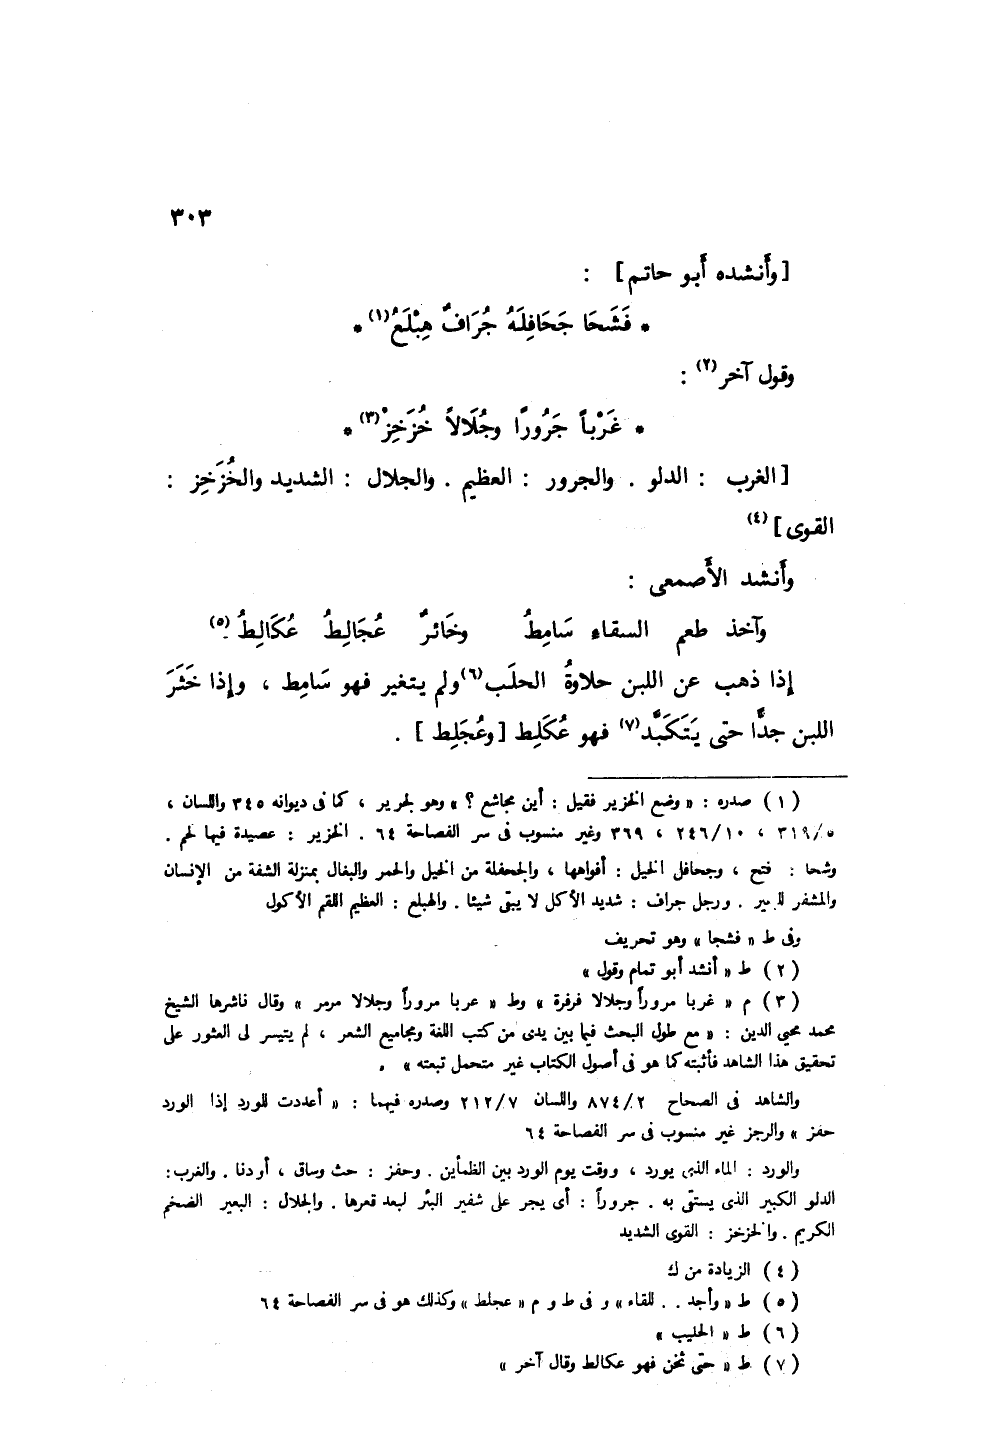 ٣٠٣
[وأَنشده أَبو حاتم] :
* فَشَحَا جَحَافِلَهُ جُرَافٌ هِبْلَعُ(١) *
وقول آخر(٢) :
* غَرْباً جَرُورًا وجُلَالاً خُزَخِزْ(٣) *
[الغرب : الدلو . والجرور : العظيم . والجلال : الشديد والخُزَخِز :
القوى](٤)
وأَنشد الأَصمعى :
وآخذ طعم السقاء سَامِطُ وخَائرٌ عُجَالِطُ عُكَالِطُ(٥)
إذا ذهب عن اللبن حلاوةُ الحلَب(٦)ولم يتغير فهو سَامِط ، وإذا خَثَرَ
اللبن جدًّا حتى يَتَكَبَّد(٧) فهو عُكَلِط [وعُجَلِط] .
(١) صدره : « وضع الخزير فقيل : أين مجاشع ؟ » وهو لجرير ، كما فى ديوانه ٣٤٥ واللسان ،
٣١٩/٥ ، ٢٤٦/١٠ ، ٣٦٩ وغير منسوب فى سر الفصاحة ٦٤ . الخزير : عصيدة فيها لحم .
وشحا : فتح ، وجحافل الخيل : أفواهها ، والجحفلة من الخيل والحمر والبغال بمنزلة الشفة من الإنسان
والمشفر للبعير . ورجل جراف : شديد الأكل لا يبقى شيئا . والهبلع : العظيم اللقم الأكول
وفى ط « فشجا » وهو تحريف
(٢) ط « أنشد أبو تمام وقول »
(٣) م « غربا مروراً وجلالا فرفرة » وط « عربا مروراً وجلالا مرمر » وقال ناشرها الشيخ
محمد محيي الدين : « مع طول البحث فيما بين يدى من كتب اللغة ومجاميع الشعر ، لم يتيسر لى العثور على
تحقيق هذا الشاهد فأثبته كما هو فى أصول الكتاب غير متحمل تبعته » .
والشاهد فى الصحاح ٨٧٤/٢ واللسان ٢١٢/٧ وصدره فيهما : « أعددت للورد إذا الورد
حفز » والرجز غير منسوب فى سر الفصاحة ٦٤
والورد : الماء الذى يورد ، ووقت يوم الورد بين الظمأين . وحفز : حث وساق ، أو دنا . والغرب :
الدلو الكبير الذى يستقى به . جروراً : أى يجر على شفير البئر لبعد قعرها . والجلال : البعير الضخم
الكريم . والخزخز : القوى الشديد
(٤) الزيادة من ك
(٥) ط « وأجد . . للقاء » و فى ط و م « عجلط » وكذلك هو فى سر الفصاحة ٦٤
(٦) ط « الحليب »
(٧) ط « حتى ثخن فهو عكالط وقال آخر »